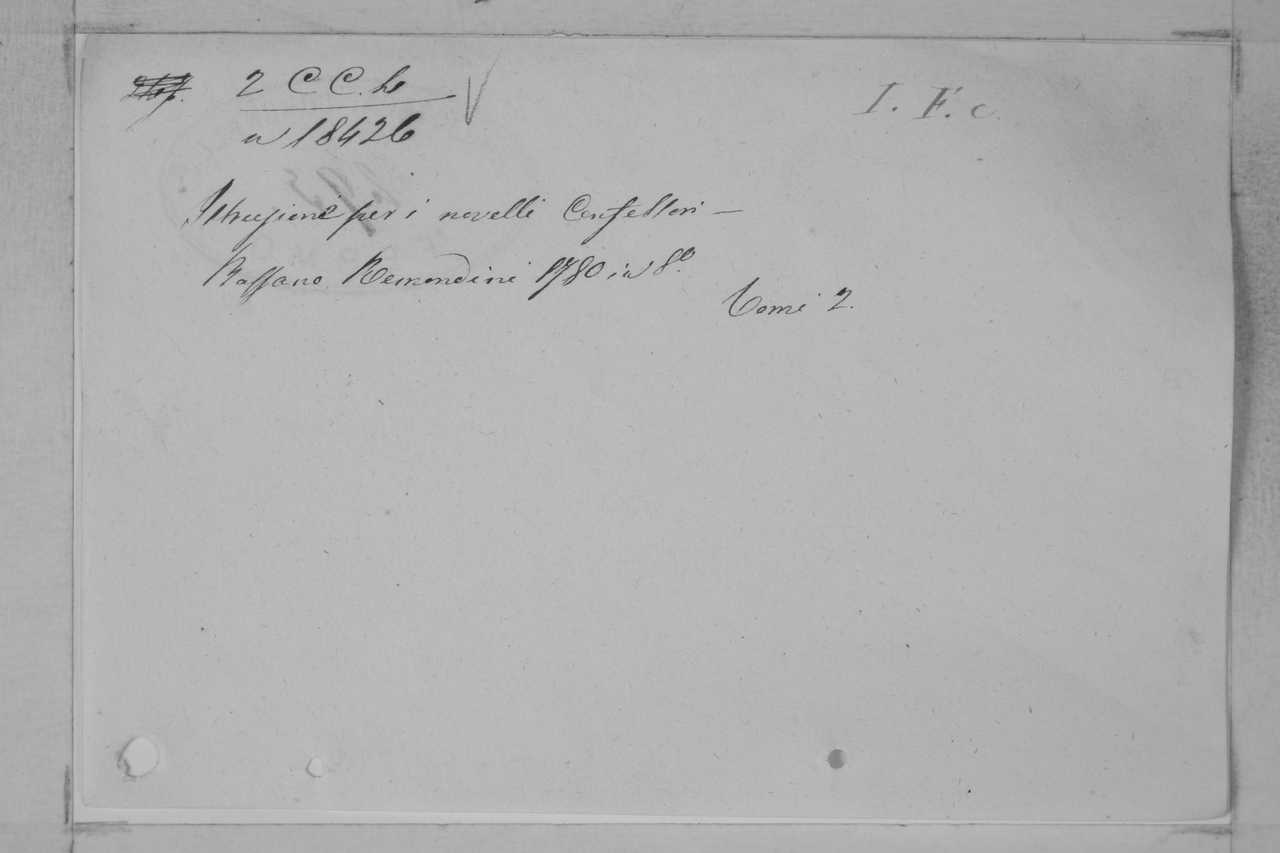 2 C C. h
I. F. c.
n 18426
Istruzione per i novelli Confessori —
Bassano Remondini 1780 in 8º
Tomi 2.